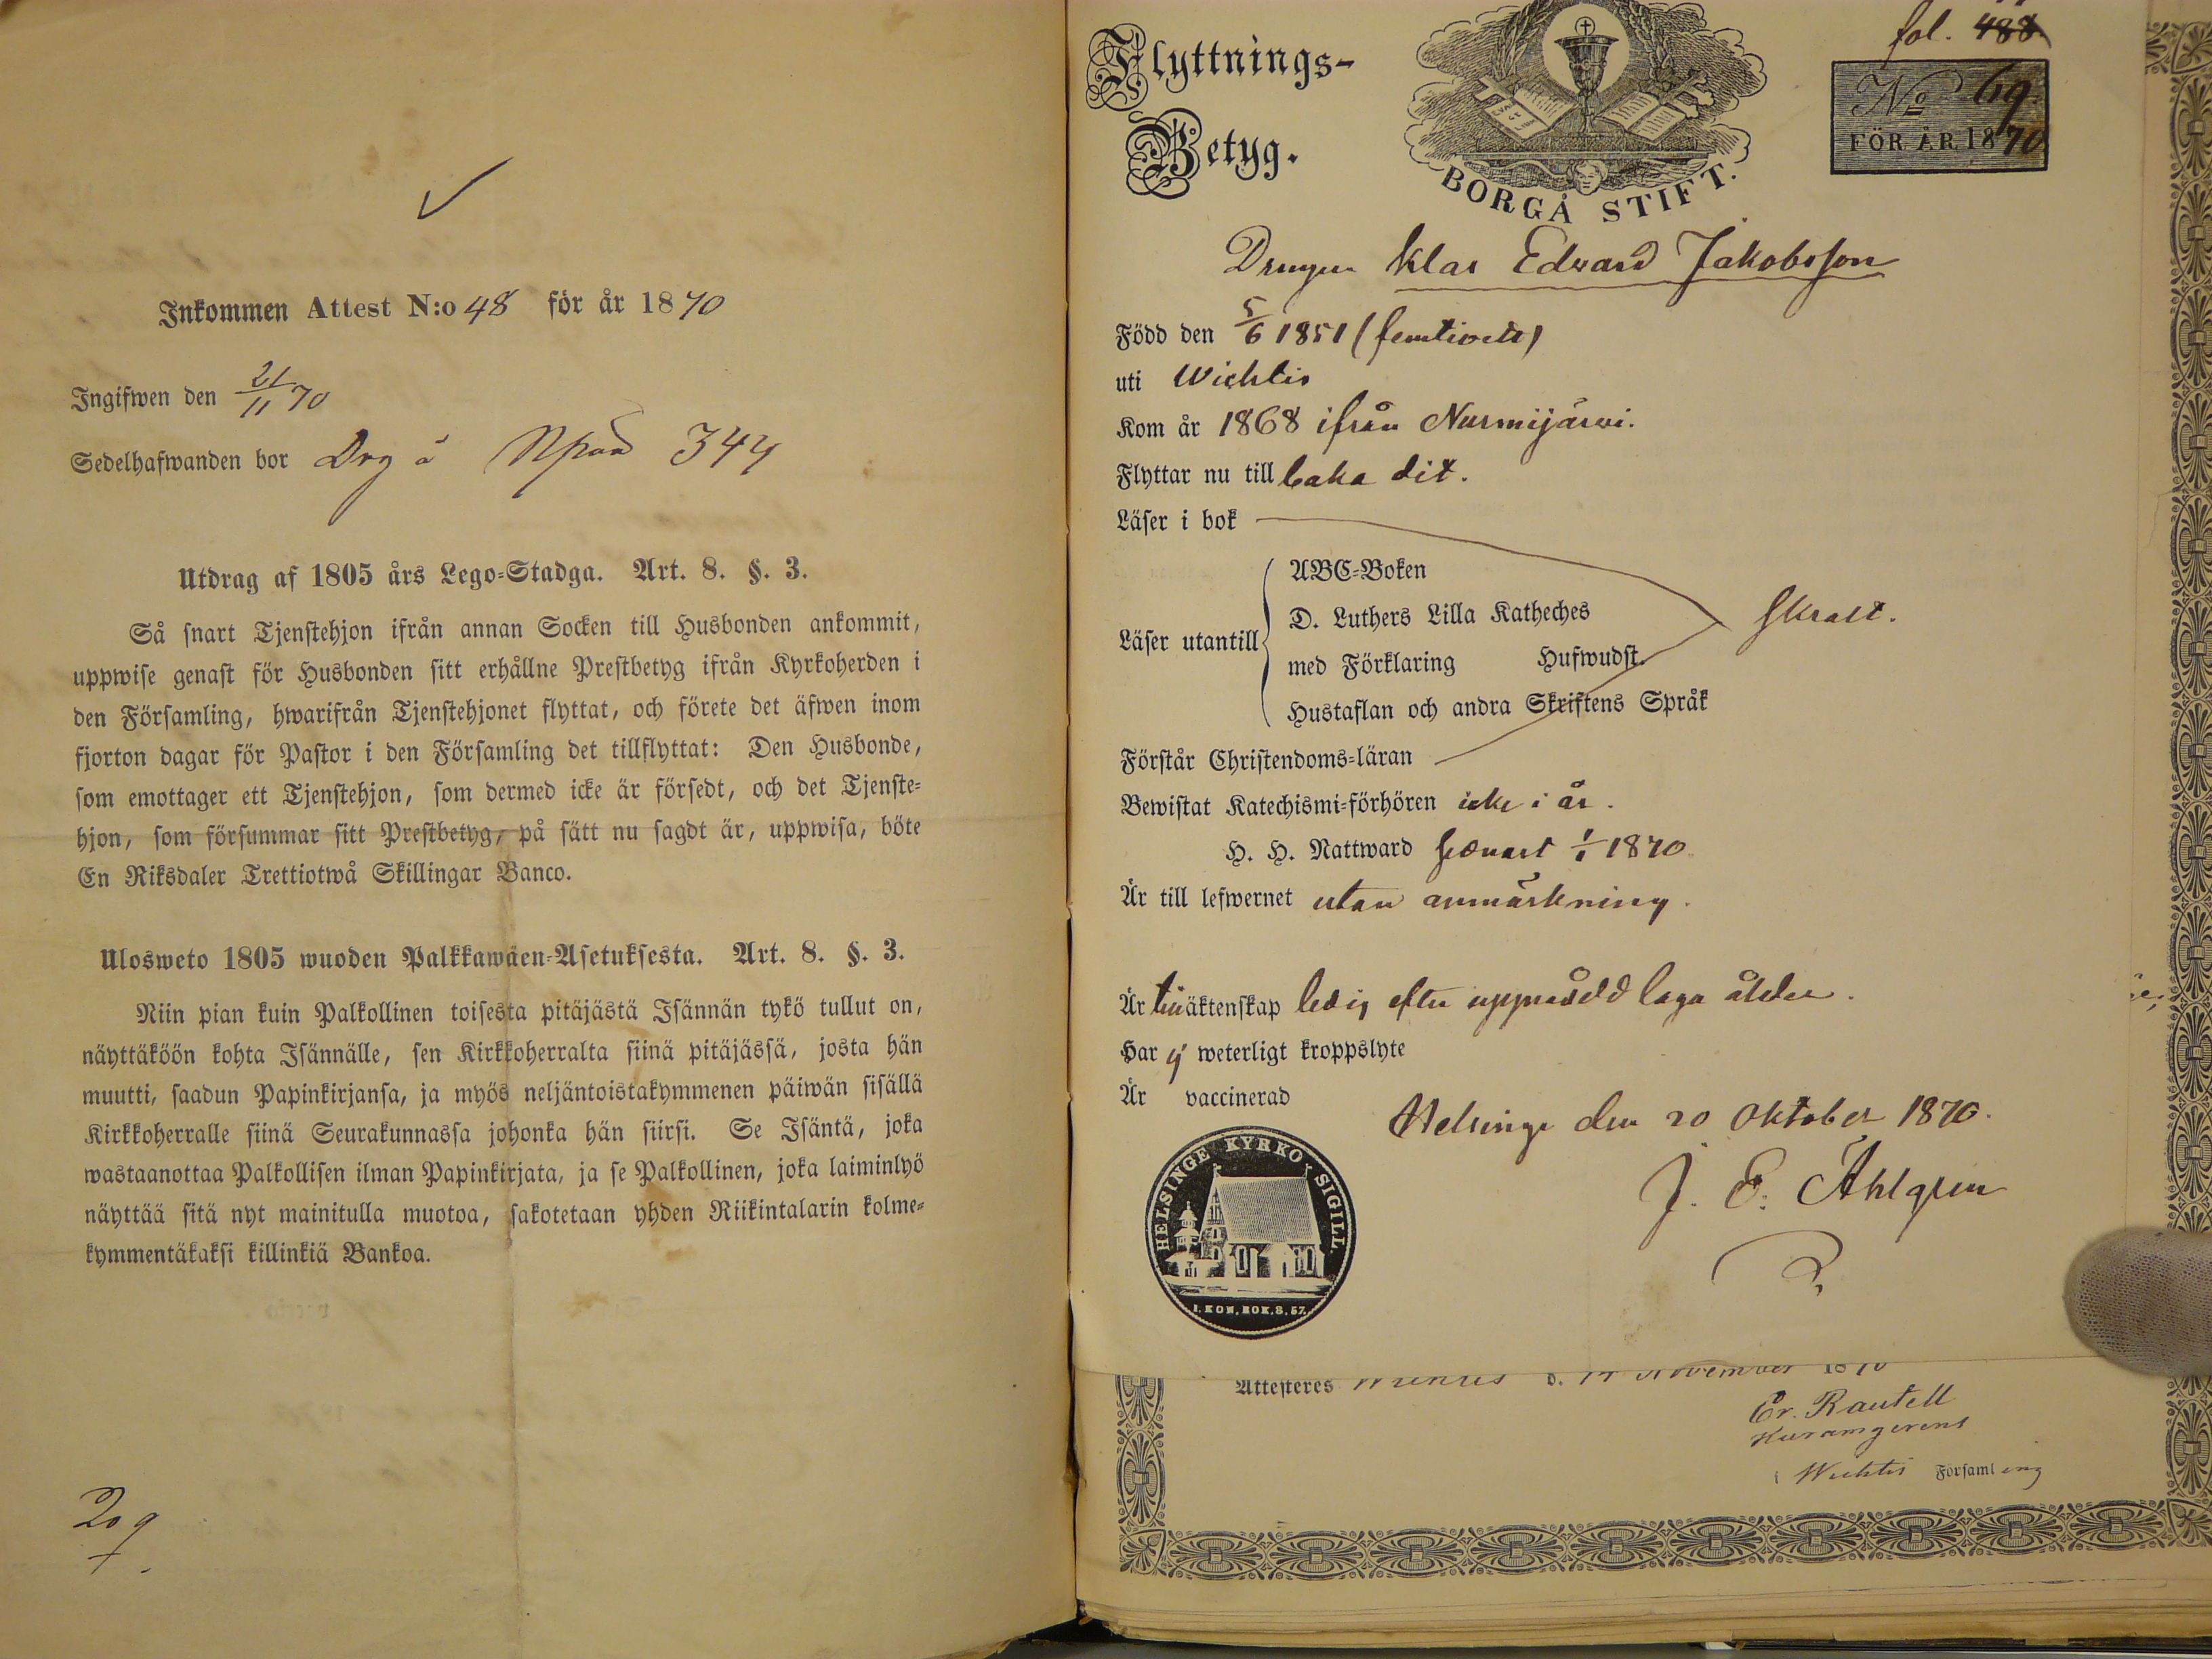 Inkommen Attest N:o 48 för år 1870
Ingifwen den 21/11 70
Sedelhafwanden bor Drg å 344
Utdrag af 1805 års Lego-Stadga. Art. 8. §. 3.
Så snart Tjenstehjon ifrån annan Socken till Husbonden ankommit,
uppwise genast för Husbonden sitt erhållne Prestbetyg ifrån Kyrkoherden i
den Församling, hwarifrån Tjenstehjonet flyttat, och förete det äfwen inom
fjorton dagar för Pastor i den Församling det tillflyttat: Den Husbonde,
som emottager ett Tjenstehjon, som dermed icke är försedt, och det Tjenste-
hjon, som försummar sitt Prestbetyg, på sätt nu sagdt är, uppwisa, böte
En Riksdaler Trettiotwå Skillingar Banco.
Ulosweto 1805 wuoden Palkkawäen-Asetuksesta. Art. 8. §. 3.
Niin pian kuin Palkollinen toisesta pitäjästä Isännän tykö tullut on,
näyttäköön kohta Isännälle, sen Kirkkoherralta siinä pitäjässä, josta hän
muutti, saadun Papinkirjansa, ja myös neljäntoistakymmenen päiwän sisällä
Kirkkoherralle siinä Seurakunnassa johonka hän siirsi. Se Isäntä, joka
wastaanottaa Palkollisen ilman Papinkirjata, ja se Palkollinen, joka laiminlyö
näyttää sitä nyt mainitulla muotoa, sakotetaan yhden Riikintalarin kolme-
kymmentäkaksi killinkiä Bankoa.
209
Flyttnings-
Betyg.
BORGÅ STIFT.
fol. 488
No 69.
FÖR ÅR 1870
Drengen Klas Edvard Jakobsson
Född den 5/6 1851 (femtioett)
uti Wichtis
Kom år 1868 ifrån Nurmijärvi.
Flyttar nu till baka dit.
Läser i bok
ABC-Boken
D. Luthers Lilla Katheches
Läser utantill
med Förklaring Hufwudst.
Hustaflan och andra Skriftens Språk
Förstår Christendoms-läran
Bewistat Katechismi-förhören icke i år.
H. H. Nattward senast 1/1 1870
Är till lefwernet utan anmärkning.
Är till äktenskap ledig efter uppnådd laga ålder.
Har ej weterligt kroppslyte
Är vaccinerad
Helsinge den 20 Oktober 1870.
J. E. Åhlgren
HELSINGE KYRKO SIGILL.
I. KON. BOK. 8. 57.
Attesteres November 1870
Er. Rautell
i Wichtis Församling